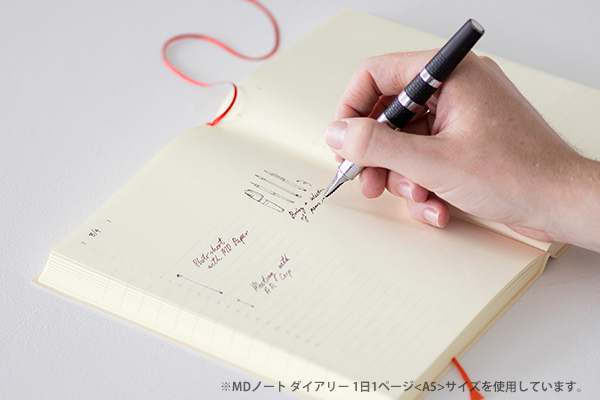 8/4
Bring a selection
of pens.
Photo shoot
with MD Paper
Meeting with
A.R.T Corp
※MDノート ダイアリー 1日1ページ<A5>サイズを使用しています。